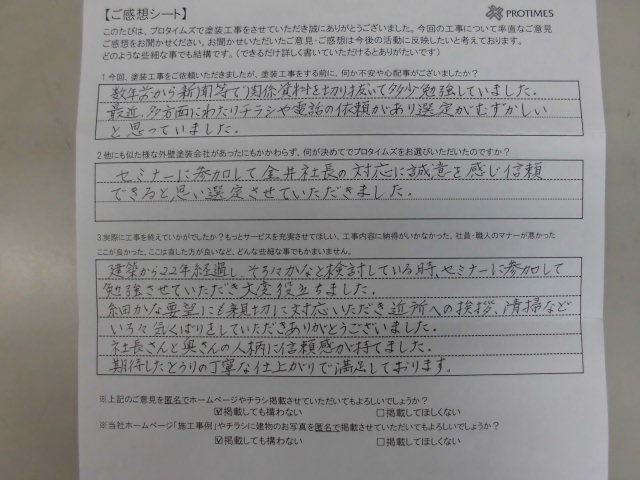 【ご感想シート】
PROTIMES
このたびは、プロタイムズで塗装工事をさせていただき誠にありがとうございました。今回の工事について率直なご意見
ご感想をお聞かせください。お聞かせいただいたご意見・ご感想は今後の活動に反映したいと考えております。
どのような些細な事でも結構です。(できるだけ詳しく書いていただけるとありがたいです)
1.今回、塗装工事をご依頼いただきましたが、塗装工事をする前に、何か不安や心配事がございましたか?
数年前から新聞等で関係資料を切り抜いて多少勉強していました。
最近、多方面にわたりチラシや電話の依頼があり選定がむずかしい
と思っていました。
2.他にも似た様な外壁塗装会社があったにもかかわらず、何が決めてでプロタイムズをお選びいただいたのですか?
セミナーに参加して金井社長の対応に誠意を感じ信頼
できると思い選定させていただきました。
3.実際に工事を終えていかがでしたか?もっとサービスを充実させてほしい、工事内容に納得がいかなかった、社員・職人のマナーが悪かった
ここが良かった、ここは直した方が良いなど、どんな些細な事でもかまいません。
建築から22年経過し、そろそろかなと検討している時、セミナーに参加して
勉強させていただき大変役立ちました。
細かな要望にも親切に対応いただき近所への挨拶、清掃など
いろいろ気くばりをしていただきありがとうございました。
社長さんと奥さんの人柄に信頼感が持てました。
期待したとうりの丁寧な仕上がりで満足しております。
※上記のご意見を匿名でホームページやチラシ掲載させていただいてもよろしいでしょうか?
☑掲載しても構わない □掲載してほしくない
※当社ホームページ「施工事例」やチラシに建物のお写真を匿名で掲載させていただいてもよろしいでしょうか?
☑掲載しても構わない □掲載してほしくない